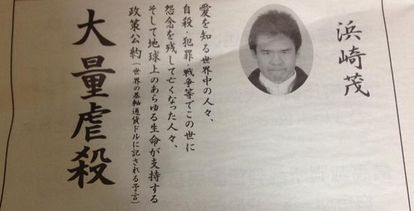 浜崎茂
愛を知る世界中の人々、
自殺・犯罪・戦争等でこの世に
怨念を残して亡くなった人々、
そして地球上のあらゆる生命が支持する
政策公約(世界の基軸通貨ドルに記される予言)
大量虐殺